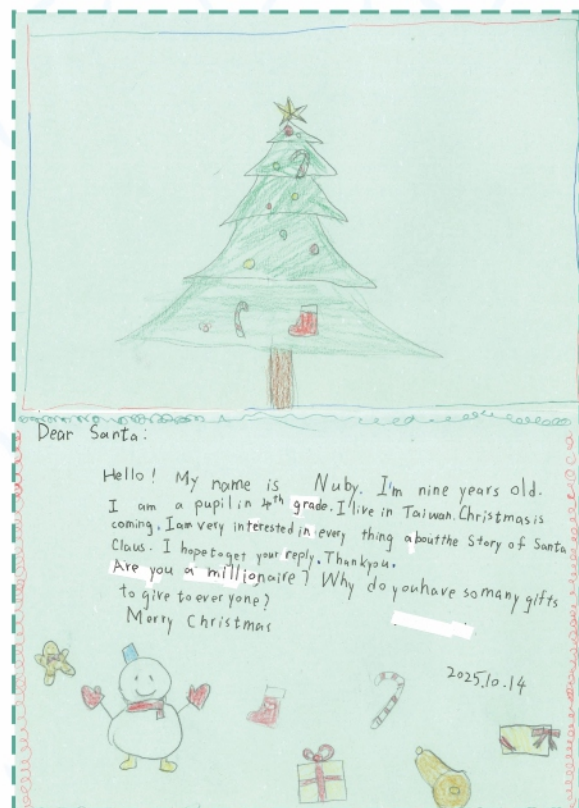 Dear Santa:
Hello! My name is Nuby. I'm nine years old.
I am a pupil in 4th grade. I live in Taiwan. Christmas is
coming. I am very interested in every thing about the Story of Santa
Claus. I hope to get your reply. Thank you.
Are you a millionaire? Why do you have so many gifts
to give to everyone?
Merry Christmas
2025.10.14